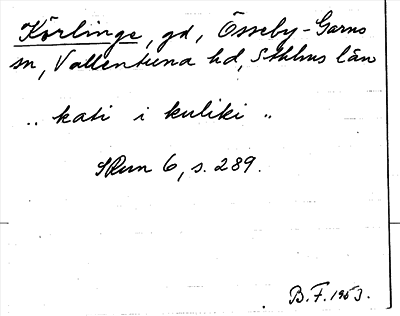 Körlinge, gd, Össeby-Garns
sn, Vallentuna hd, Sthlms län
.. kati i kuliki ..
SRun 6, s. 289.
B. F. 1953.